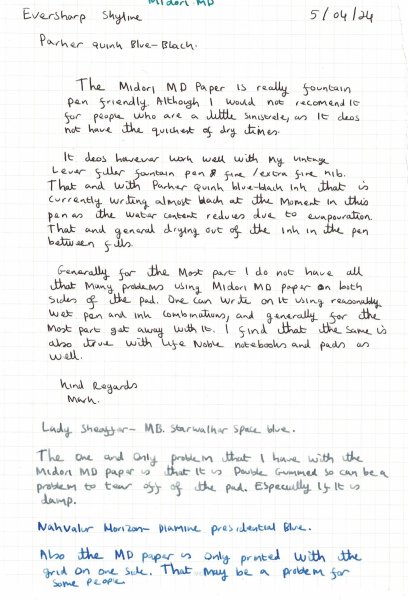 Midori MD
Eversharp Skyline 5/04/24
Parker quink Blue-Black.
The Midori MD Paper is really fountain
pen friendly. Although I would not recomend it
for people who are a little sinistrele, as it deos
not have the quickest of dry times.
It deos howevar work well with my vintage
Lever filler fountain pen & fine /extra fine nib.
That and with Parker quink blue-black ink that is
currently writing almost black at the moment in this
pen as the water content reduces due to evapouration.
That and general drying out of the ink in the pen
between fills.
Generally for the most part I do not have all
that many problems using Midori MD paper on both
sides of the pad. One can write on it using reasonably
wet pen and ink combinations, and generally for the
most part get away with it. I find that the same is
also true with Life Noble notebooks and pads as
well.
Kind Regards
Mark.
Lady Sheaffer- MB. Starwalker Space blue.
The one and only problem that I have with the
Midori MD paper is that it is Double Gummed so can be a
problem to tear off of the pad. Especially if it is
damp.
Nahvalur Horizon- Diamine presidential Blue.
Also the MD paper is only printed with the
grid on one side. That may be a problem for
some people.